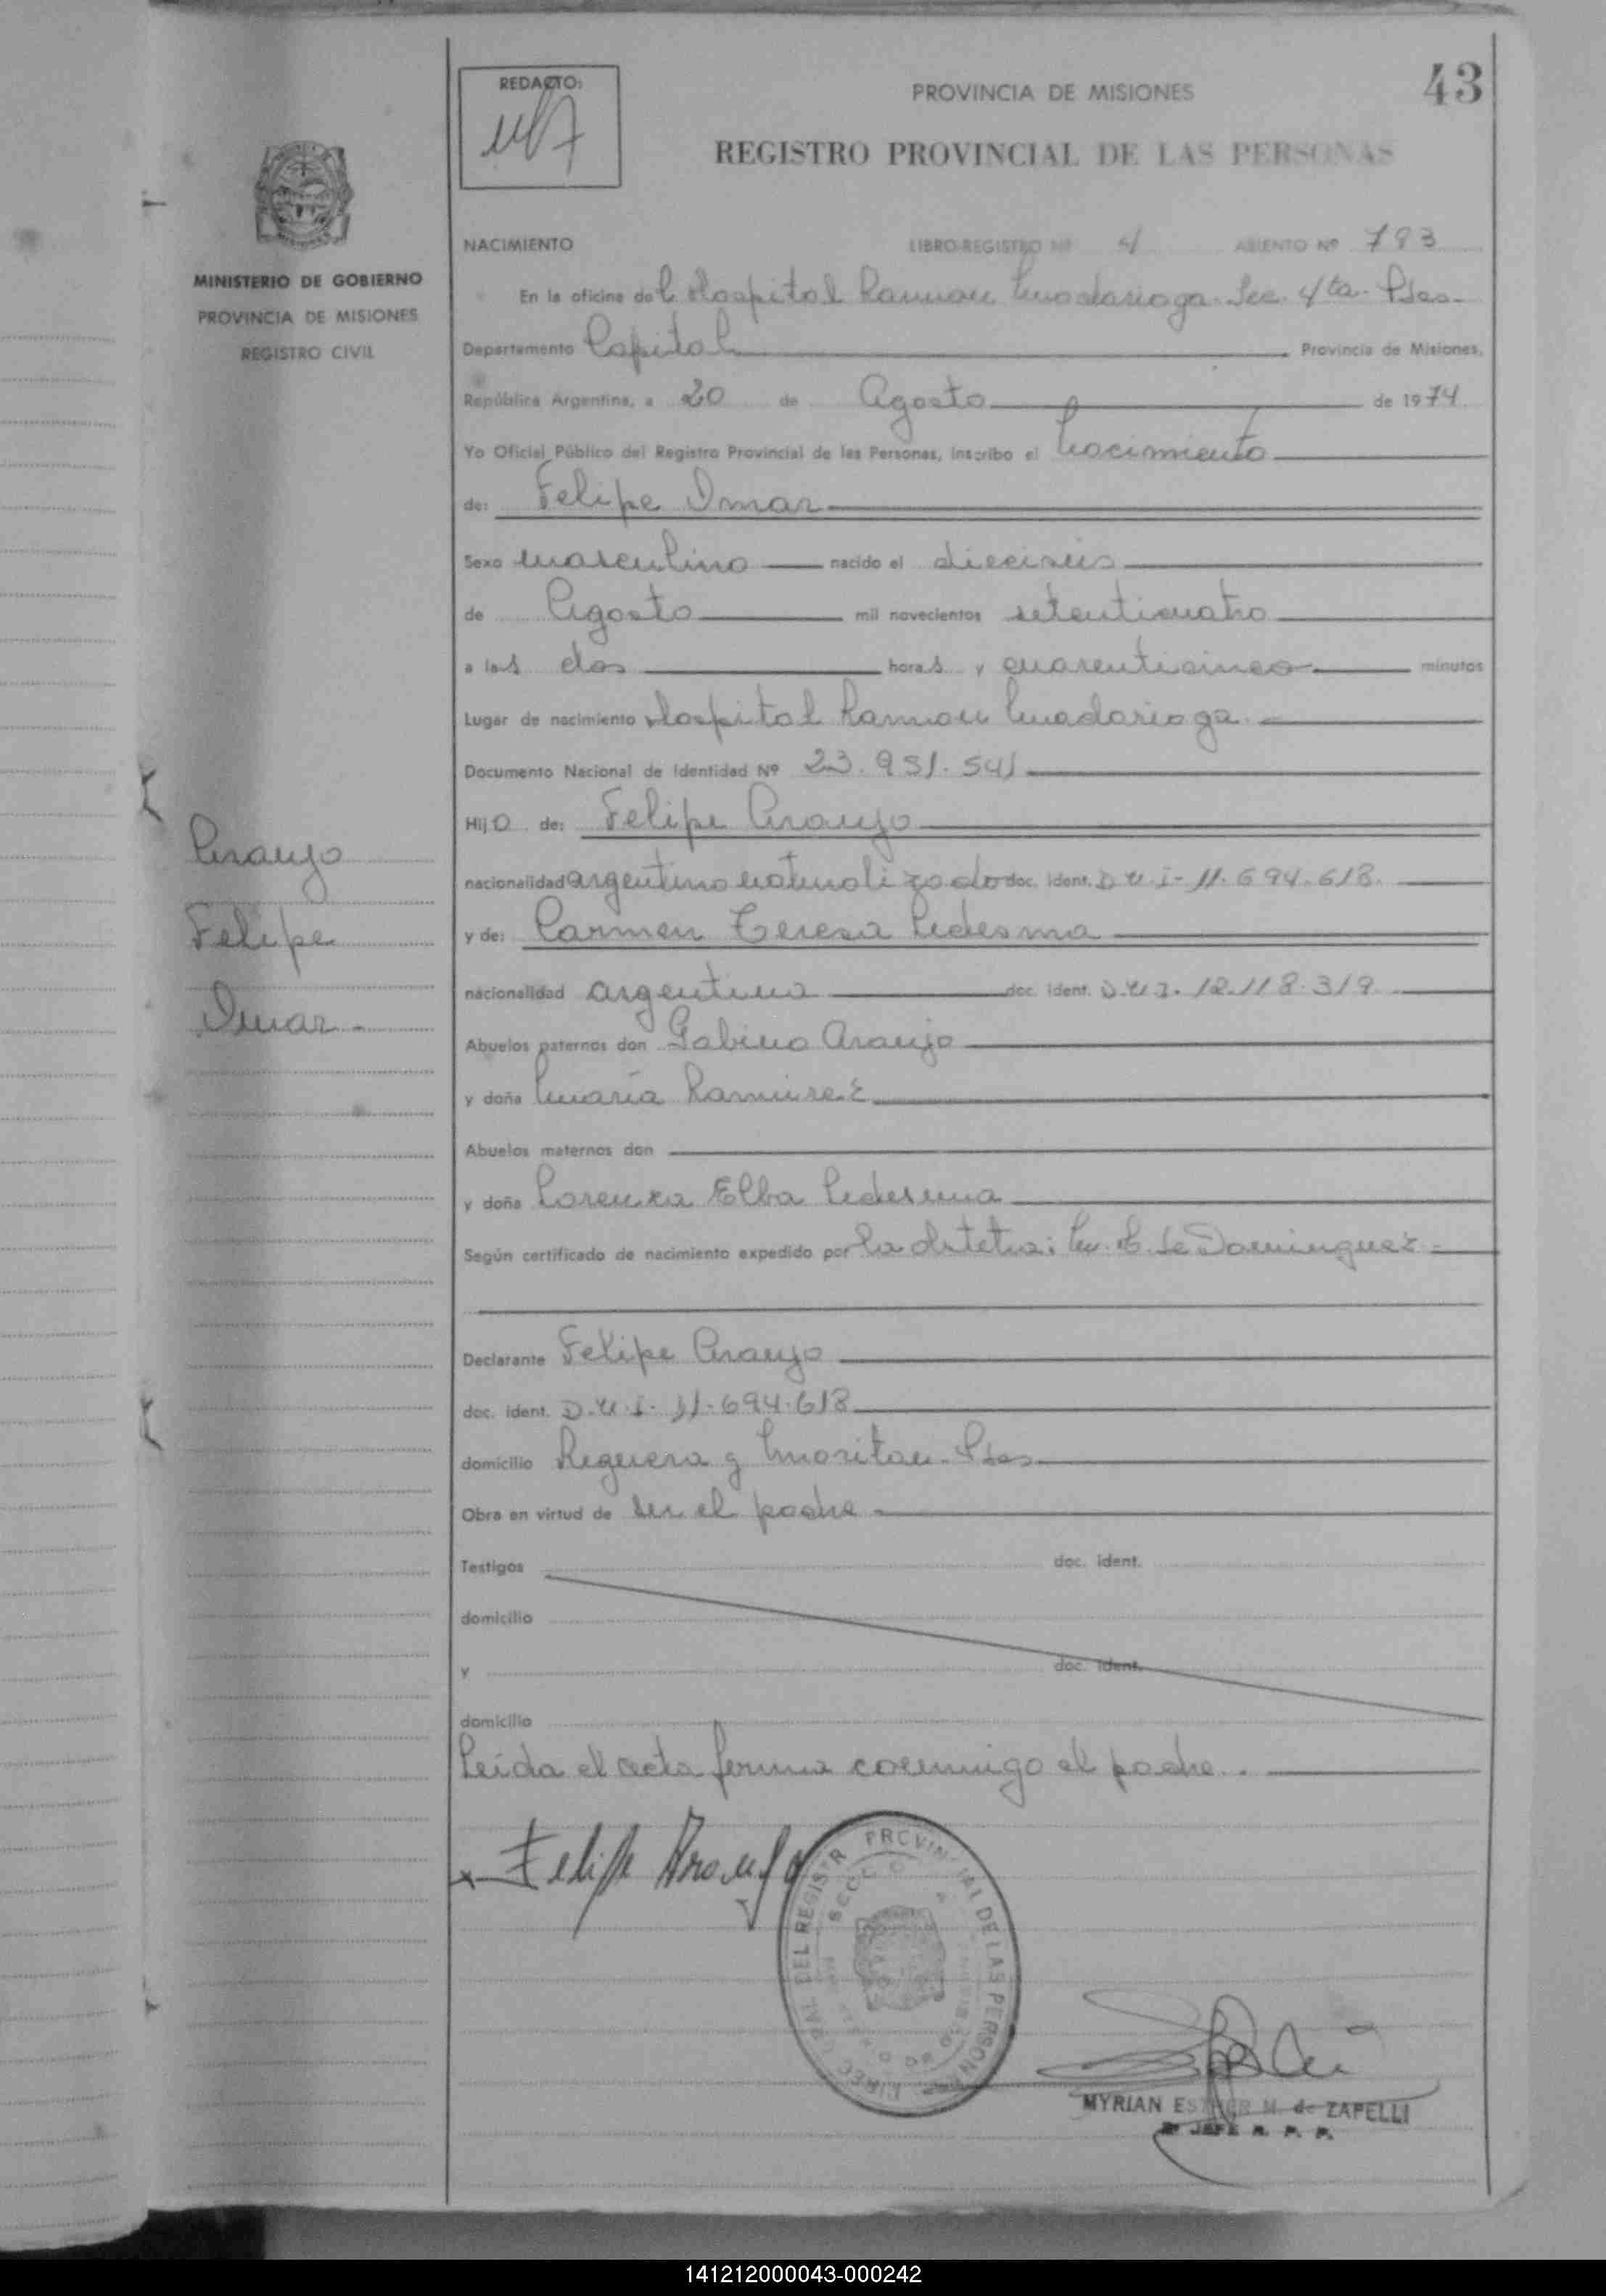 43
REDACTO:
PROVINCIA DE MISIONES
REGISTRO PROVINCIAL DE LAS PERSONAS
MINISTERIO DE GOBIERNO
PROVINCIA DE MISIONES
REGISTRO CIVIL
NACIMIENTO LIBRO-REGISTRO Nº 4 ASIENTO Nº 783
En la oficina del Hospital Ramon Madariaga. Sec. 4ta. Pdas.
Departamento Capital Provincia de Misiones,
República Argentina, a 20 de Agosto de 1974
Yo Oficial Público del Registro Provincial de las Personas, inscribo el Nacimiento
de: Felipe Omar
Sexo masculino nacido el dieciseis
de Agosto mil novecientos setenticuatro
a las dos horas y cuarenticinco minutos
Lugar de nacimiento Hospital Ramon Madariaga.
Documento Nacional de Identidad Nº 23.951.541
Hijo de: Felipe Araujo
nacionalidad argentino naturalizado doc. ident. D.N.I- 11.694.618.
y de: Carmen Teresa Ledesma
nacionalidad argentina doc. ident. D.N.I. 12.118.319
Abuelos paternos don Gabino Araujo
y doña María Ramirez
Abuelos maternos don
y doña Lorenza Elba Ledesma
Según certificado de nacimiento expedido por la obstetra: M. de Dominguez
Declarante Felipe Araujo
doc. ident. D.N.I- 11.694.618
domicilio Reguera y Moritan. Pdas
Obra en virtud de ser el padre
Testigos doc. ident.
domicilio
y doc. ident.
domicilio
Leída el acta firma conmigo el padre.
Araujo
Felipe
Omar.
Felipe Araujo
DEL REGISTR PROVIN IAL DE LAS PERSONA
MYRIAN ESTHER M. de ZAPELLI
JEFE R. P. P.
141212000043-000242